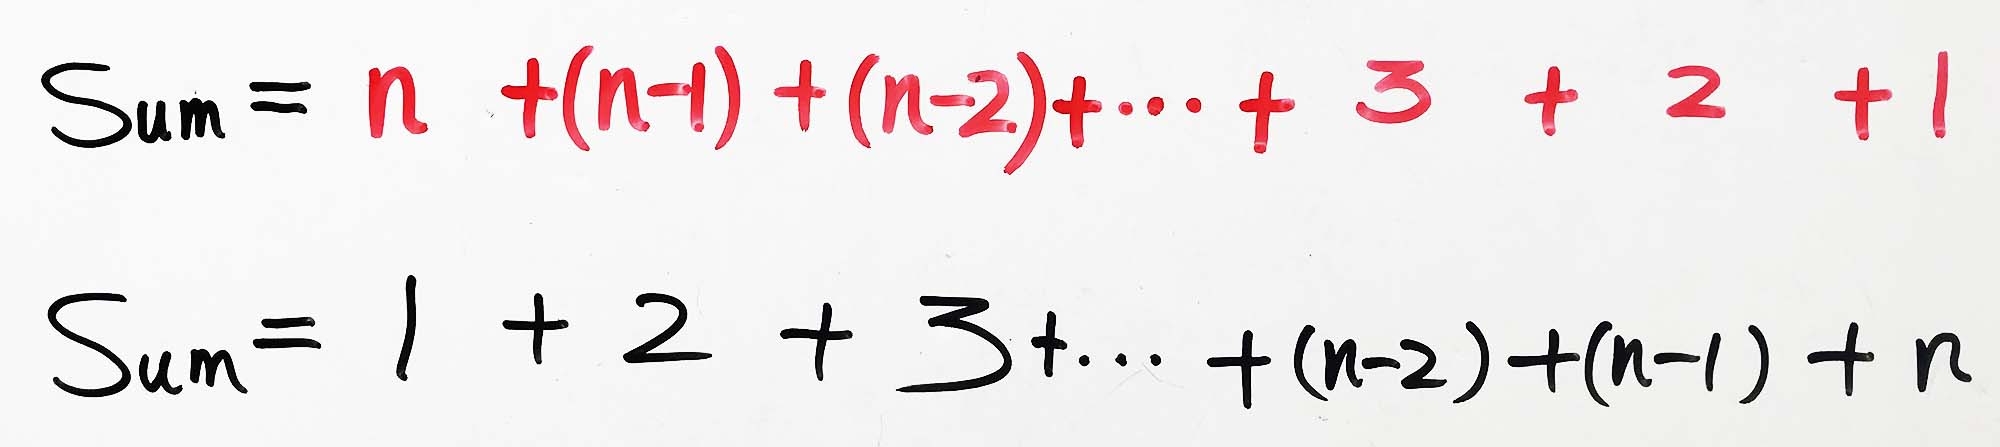 Sum = n + (n-1) + (n-2) + ... + 3 + 2 + 1
Sum = 1 + 2 + 3 + ... + (n-2) + (n-1) + n